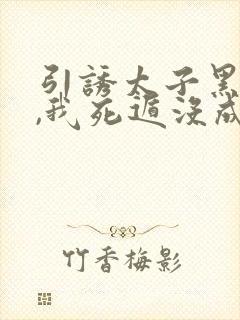 引誘太子黑
,我死遁沒成
竹香梅影